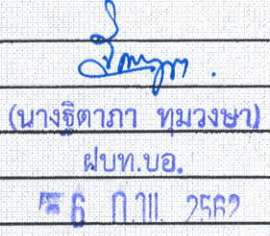 (นางฐิตาภา ทุมวงษา)
ฝบท.บอ.
6 ก.ย. 2562